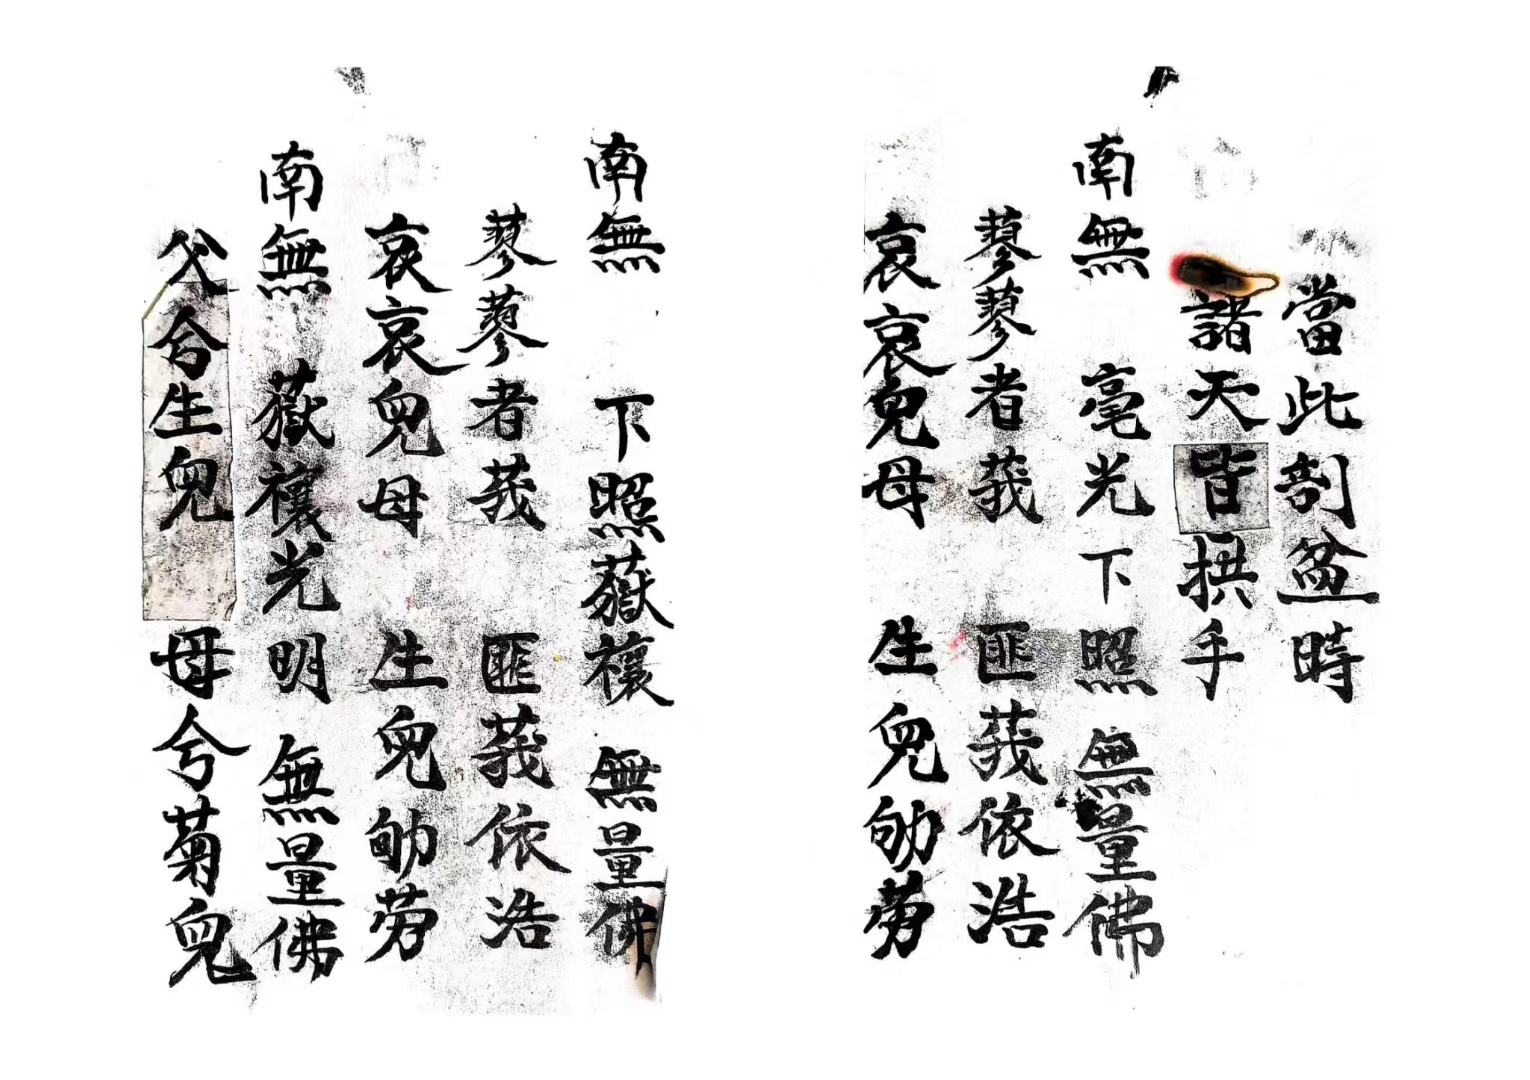 當此剖盆時
諸天皆拱手
南無 毫光下照 無量佛
蓼蓼者莪 匪莪依浩
哀哀兒母 生兒劬劳
南無 下照嶽禳 無量佛
蓼蓼者莪 匪莪依浩
哀哀兒母 生兒劬劳
南無 嶽禳光明 無量佛
父兮生兒 母兮菊兒